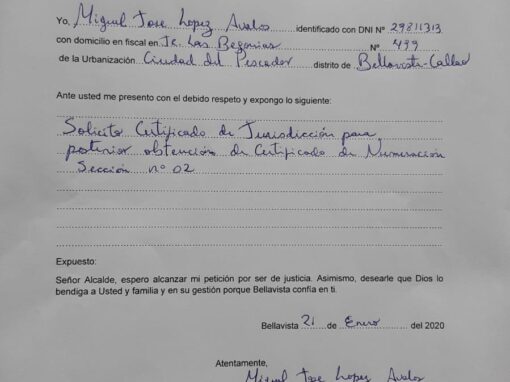 Yo, Miguel Jose Lopez Avalos identificado con DNI Nº 29811313
con domicilio en fiscal en Jr. Las Begonias Nº 499
de la Urbanización Ciudad del Pescador distrito de Bellavista-Callao
Ante usted me presento con el debido respeto y expongo lo siguiente:
Solicito Certificado de Jurisdicción para
posterior obtención de Certificado de Numeración
Sección nº 02
Expuesto:
Señor Alcalde, espero alcanzar mi petición por ser de justicia. Asimismo, desearle que Dios lo
bendiga a Usted y familia y en su gestión porque Bellavista confía en ti.
Bellavista 21 de Enero del 2020
Atentamente,
Miguel Jose Lopez Avalos